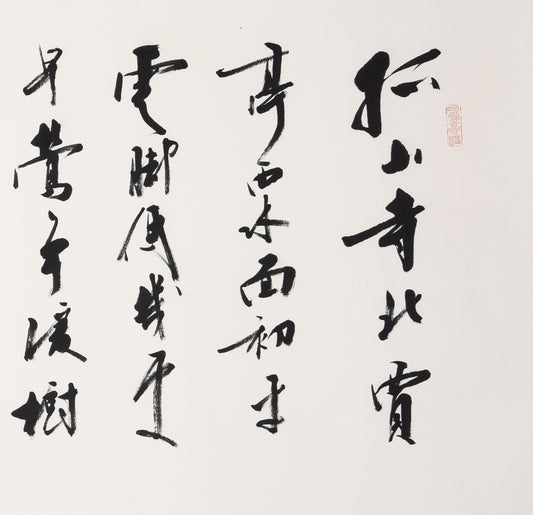 孤山寺北賈
亭西水面初平
雲脚低幾處
早鶯争暖樹